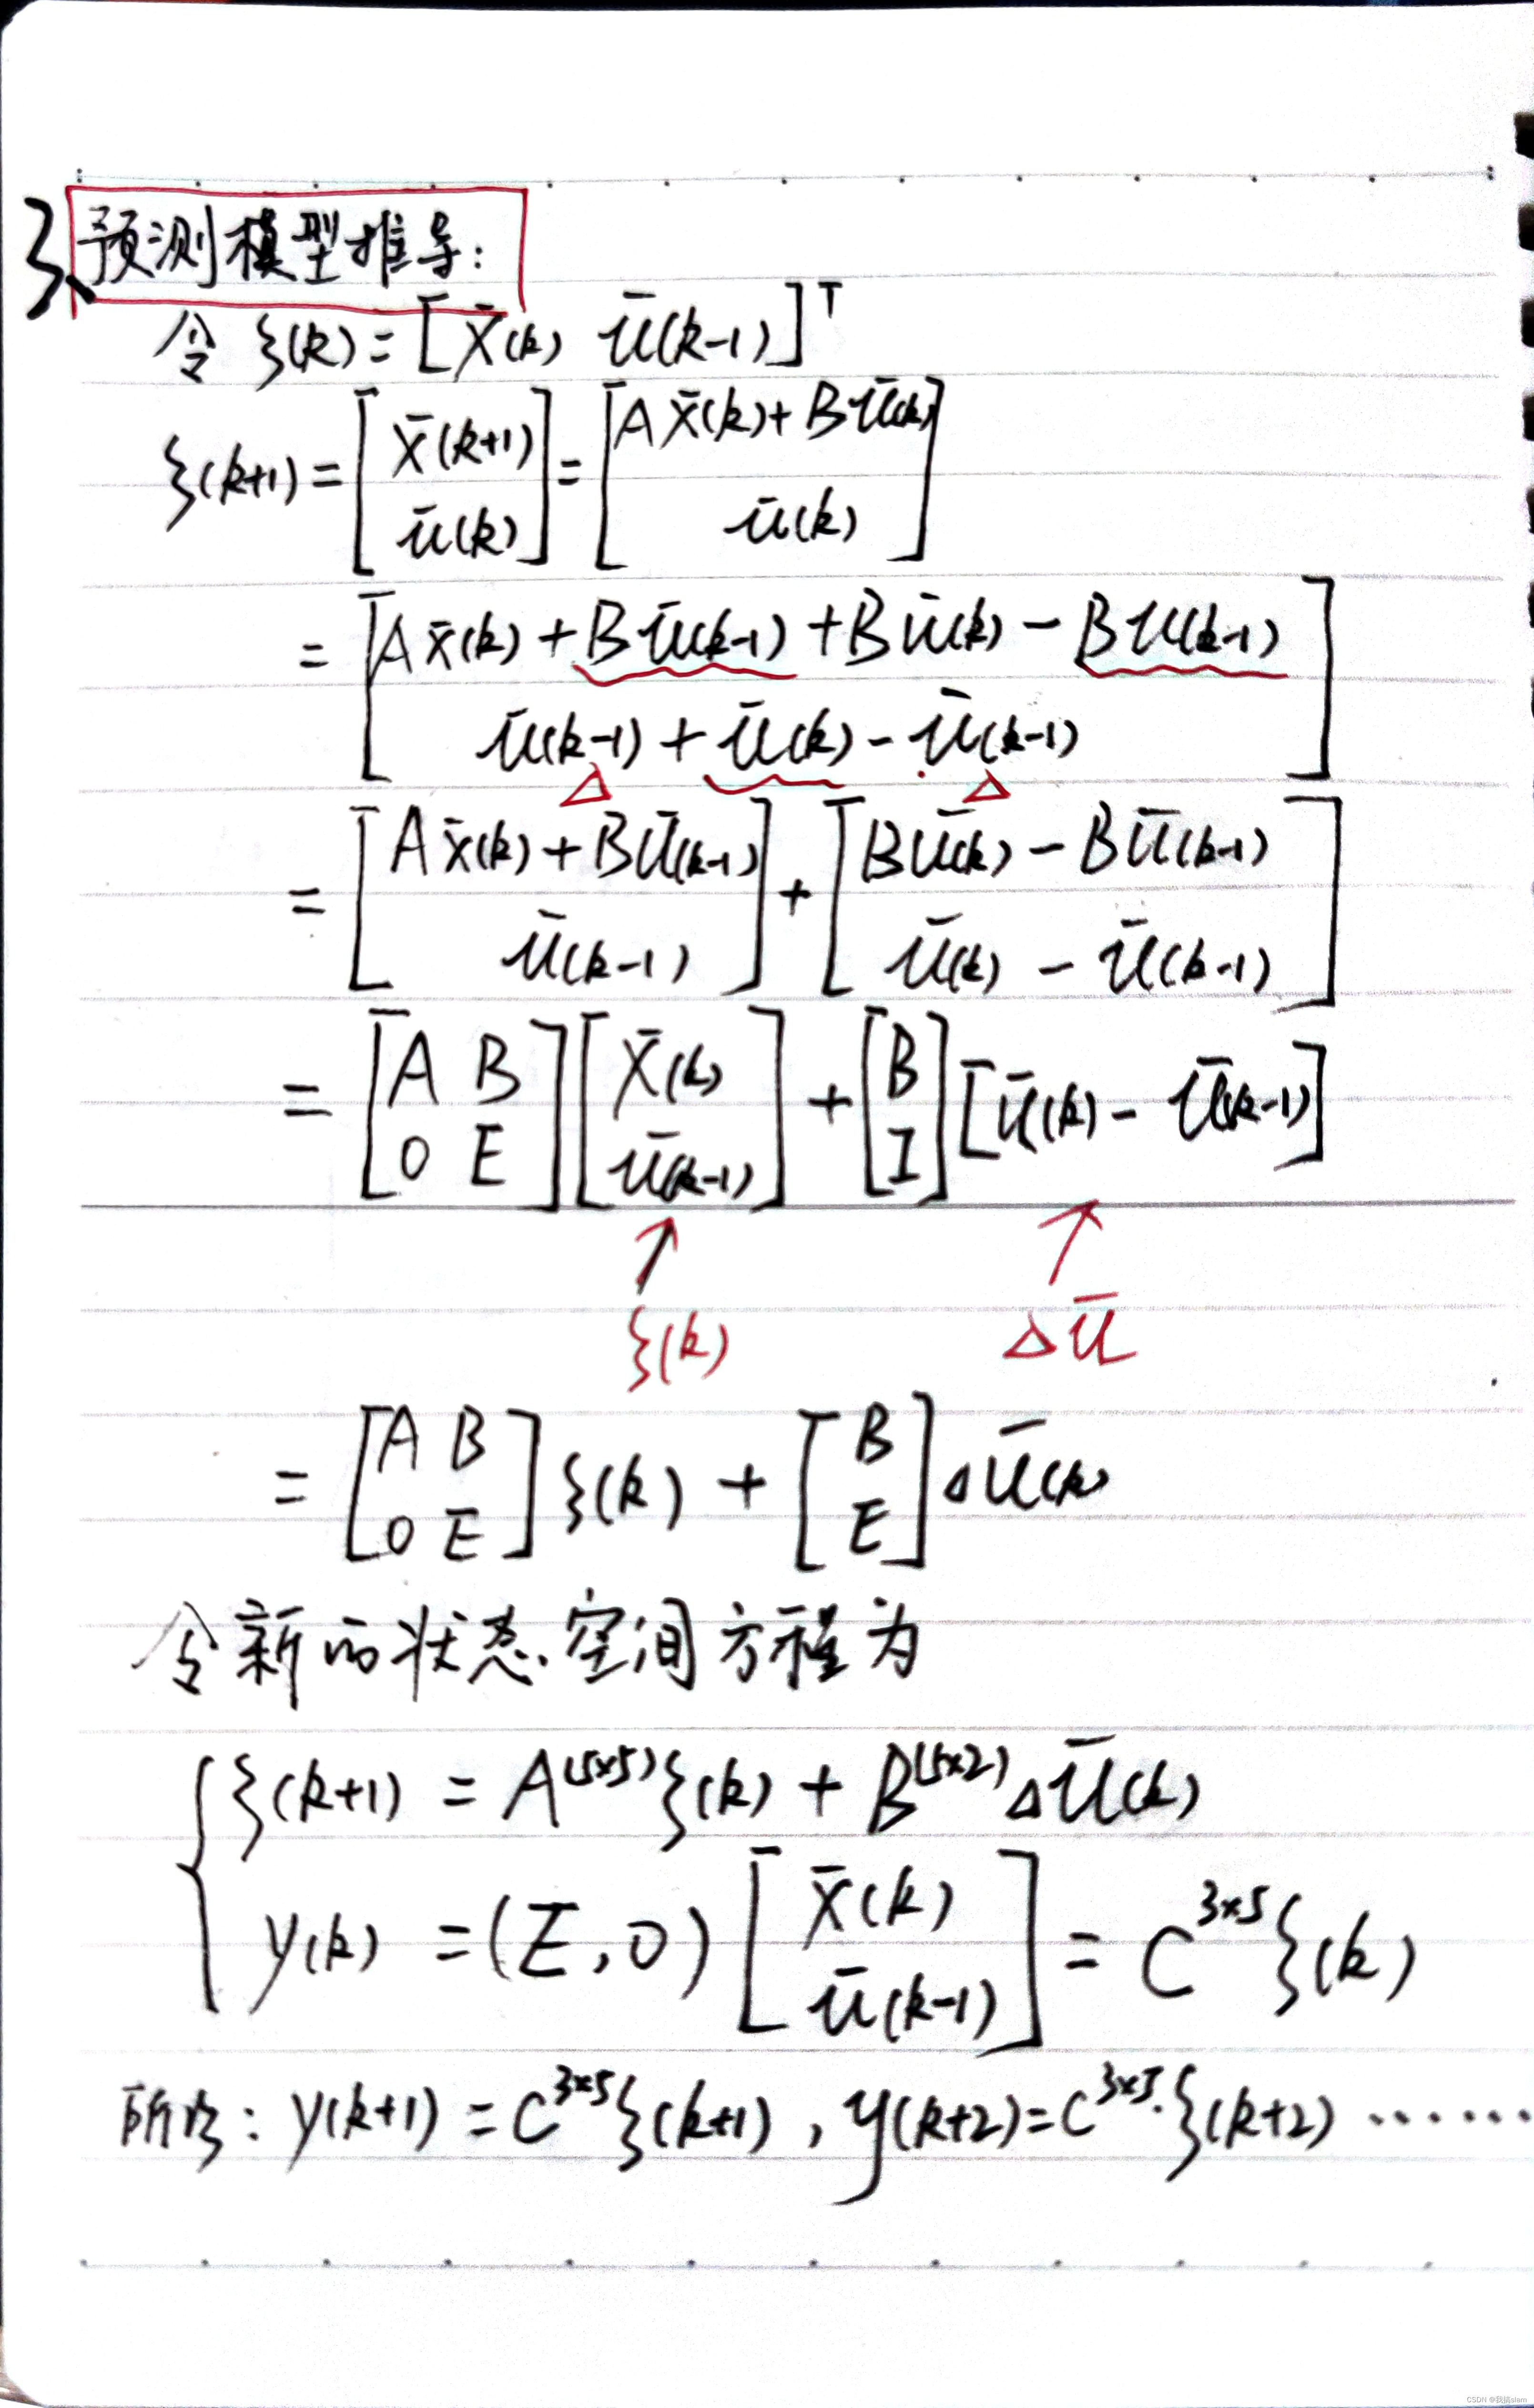 3、预测模型推导:
令 ξ(k) = [x̄(k) ū(k-1)]ᵀ
ξ(k+1) = [x̄(k+1); ū(k)] = [Ax̄(k)+Bū(k); ū(k)]
= [Ax̄(k) + Bū(k-1) + Bū(k) - Bu(k-1); ū(k-1) + ū(k) - ū(k-1)]
△ △
= [Ax̄(k) + Bū(k-1); ū(k-1)] + [Bū(k) - Bū(k-1); ū(k) - ū(k-1)]
= [A B; 0 E][x̄(k); ū(k-1)] + [B; I][ū(k) - ū(k-1)]
↑ ↑
ξ(k) Δū
= [A B; 0 E] ξ(k) + [B; E] Δū(k)
令新的状态空间方程为
{ ξ(k+1) = A⁽⁵ˣ⁵⁾ξ(k) + B⁽⁵ˣ²⁾Δū(k)
y(k) = (E,0) [x̄(k); ū(k-1)] = C³ˣ⁵ξ(k)
所以: y(k+1) = C³ˣ⁵ξ(k+1) , y(k+2) = C³ˣ⁵·ξ(k+2) ……
CSDN @我搞slam